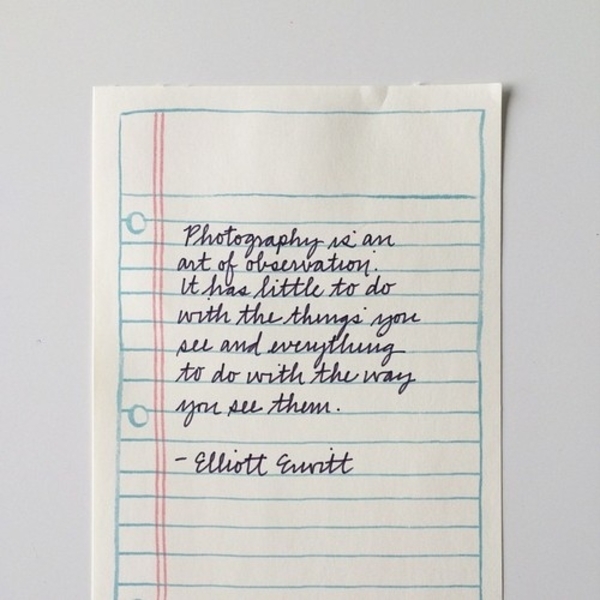 Photography is an
art of observation.
It has little to do
with the things you
see and everything
to do with the way
you see them.
- Elliott Erwitt